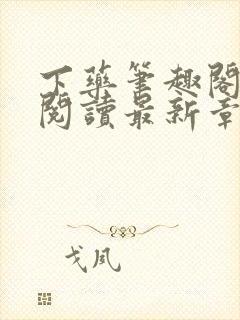 下藥筆趣閣
閱讀最新章
戈風